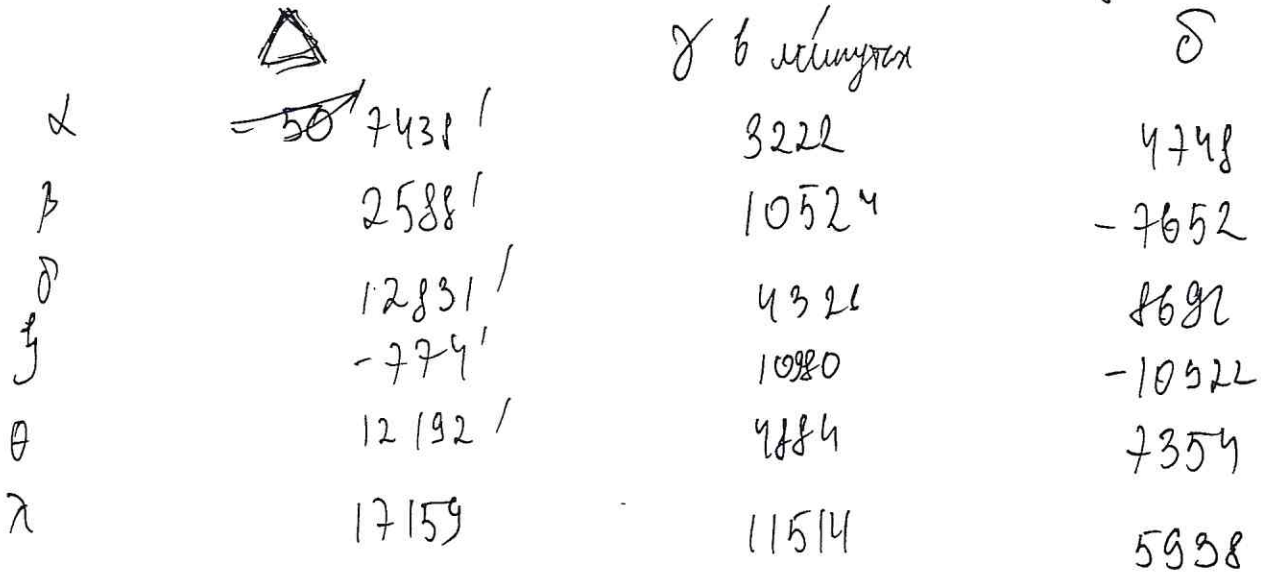 △ γ в минутах δ
α = 50 7438' 3222 4748
β 2588' 10524 -7652
δ 12831' 4321 8692
ξ -774' 10980 -10922
θ 12192' 4884 7354
λ 17159 11514 5938